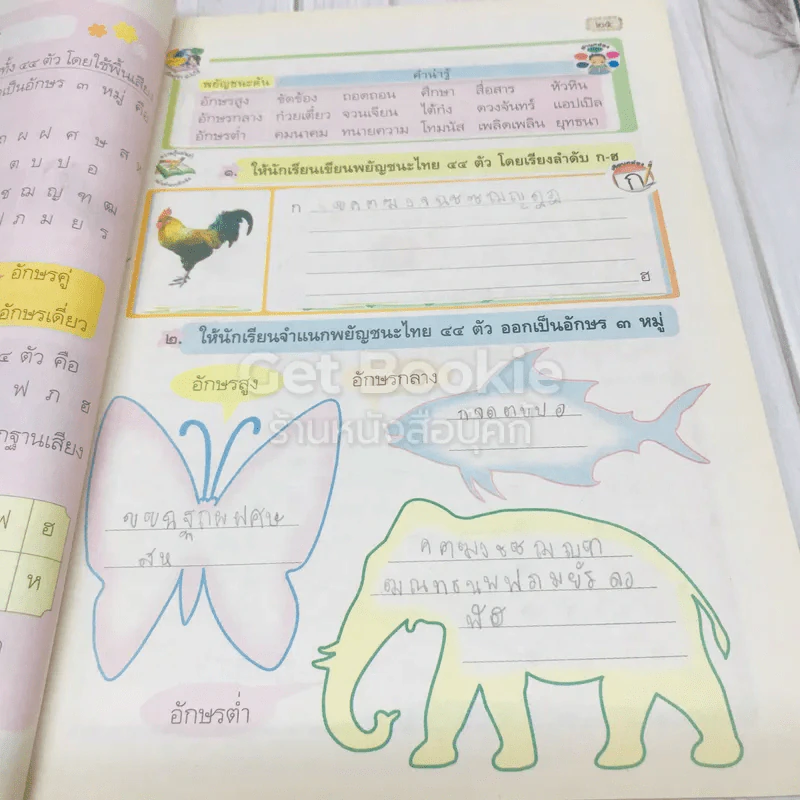 ๒๕
ทั้ง ๔๔ ตัว โดยใช้พื้นเสียง
เป็นอักษร ๓ หมู่ คือ
ผ ฝ ศ ษ ส
ด ต บ ป อ
ฌ ญ ฑ ฒ
ภ ม ย ร
อักษรคู่
อักษรเดี่ยว
๔ ตัว คือ
ฟ ภ ฮ
ฐานเสียง
ฟ ฮ
ห
พยัญชนะต้น คำนำรู้
อักษรสูง ขัดข้อง ถอดถอน ศึกษา สื่อสาร หัวหิน
อักษรกลาง ก๋วยเตี๋ยว จวนเจียน ได้ก่ง ดวงจันทร์ แอปเปิล
อักษรต่ำ คมนาคม ทนายความ โทมนัส เพลิดเพลิน ยุทธนา
๑. ให้นักเรียนเขียนพยัญชนะไทย ๔๔ ตัว โดยเรียงลำดับ ก-ฮ
ก
ก
ฮ
๒. ให้นักเรียนจำแนกพยัญชนะไทย ๔๔ ตัว ออกเป็นอักษร ๓ หมู่
Get Bookie
ร้านหนังสือบุคกี้
อักษรสูง
อักษรกลาง
ข ฃ ฉ ฐ ถ ผ ฝ ศ ษ
ส ห
ฒ ณ ท ธ น พ ฟ ภ ม ย ร ล ว
ฬ ฮ
อักษรต่ำ